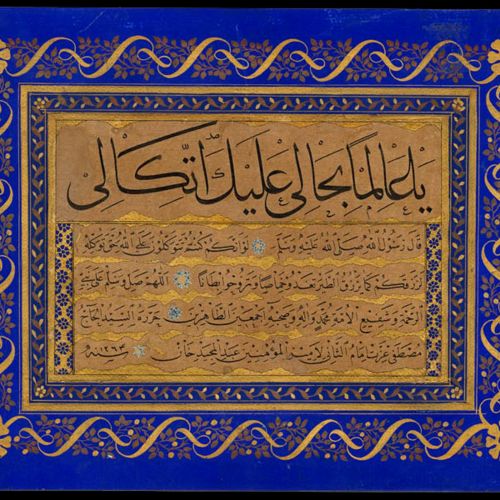 يا عالما بحالي عليك اتكالي
قال رسول الله صلى الله عليه وسلم لو انكم كنتم تتوكلون على الله حق توكله
لرزقكم كما يرزق الطير تغدو خماصا وتروح بطانا اللهم صل وسلم على نبي
الرحمة وشفيع الامة محمد وآله وصحبه اجمعين الطاهرين حرره السيد الحاج
مصطفى عزت امام الثاني لامير المؤمنين عبد المجيد خان سنه ١٢٦٣